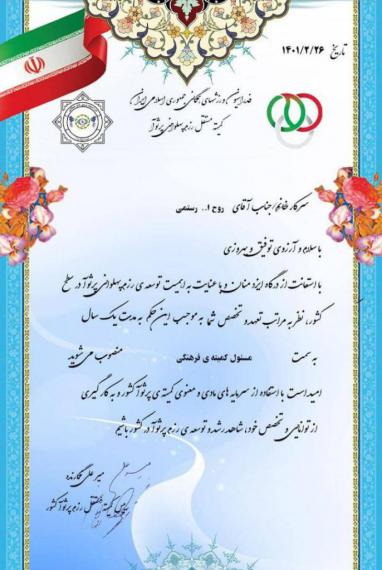 تاریخ ۱۴۰۱/۲/۲۶
فدراسیون ورزشهای همگانی جمهوری اسلامی ایران
کمیته مستقل رزم پهلوانی پرثوآ
سرکار خانم/جناب آقای روح ا.. رستمی
با سلام و آرزوی توفیق و بهروزی
با استعانت از درگاه ایزد منان و با عنایت به اهمیت توسعه ی رزم پهلوانی پرثوآ در سطح
کشور، نظر به مراتب تعهد و تخصص شما به موجب این حکم به مدت یک سال
به سمت مسئول کمیته ی فرهنگی منصوب می شوید
امید است با استفاده از سرمایه های مادی و معنوی کمیته ی پرثوآ کشور و به کارگیری
از توانایی و تخصص خود، شاهد رشد و توسعه ی رزم پرثوآ در کشور باشیم
میر علی
کمیته مستقل رزم پرثوآ کشور